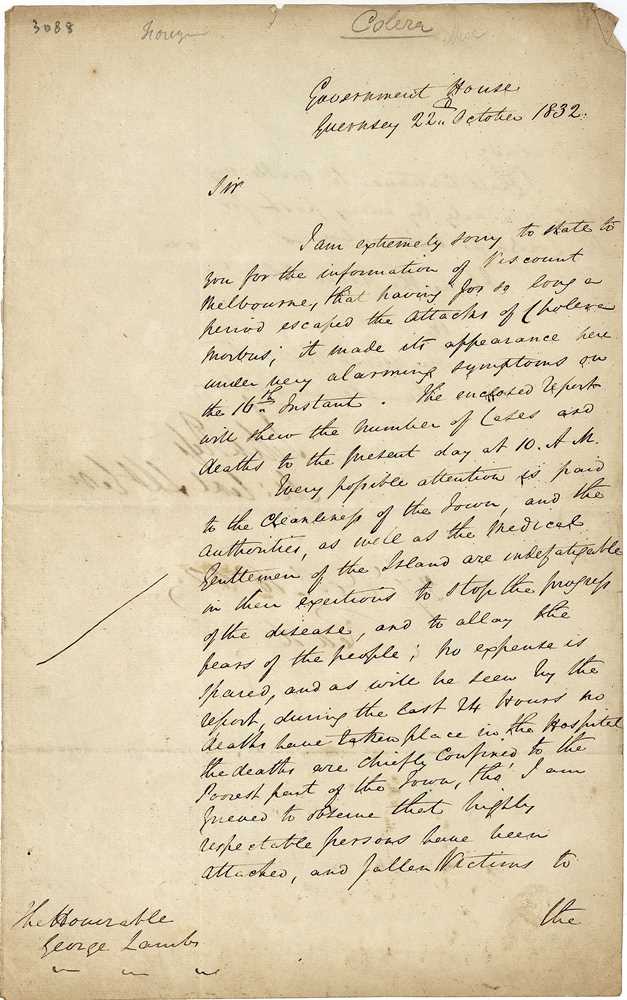 3088
Colera
Government House
Guernsey 22d October 1832.
Sir
I am extremely sorry to state to
you for the information of Viscount
Melbourne, that having for so long a
period escaped the attacks of Cholera
Morbus; it made its appearance here
under very alarming symptoms on
the 16th Instant. The enclosed report
will shew the number of Cases and
deaths to the present day at 10. A.M.
Every possible attention is paid
to the Cleanliness of the Town, and the
Authorities, as well as the Medical
Gentlemen of the Island are indefatigable
in their exertions to stop the progress
of the disease, and to allay the
fears of the people; no expense is
spared, and as will be seen by the
report, during the last 24 Hours no
deaths have taken place in the Hospital
the deaths are chiefly confined to the
Poorest part of the Town, tho' I am
grieved to observe that highly
respectable persons have been
attacked, and fallen Victims to
the
The Honorable
George Lamb